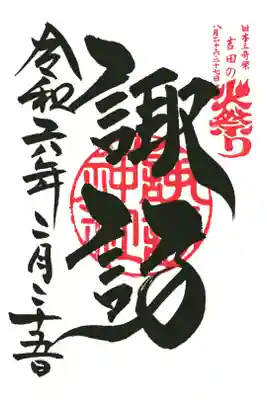 日本三奇祭
吉田の火祭り
八月二十六・二十七日
諏訪
諏訪神社
令和六年二月二十五日